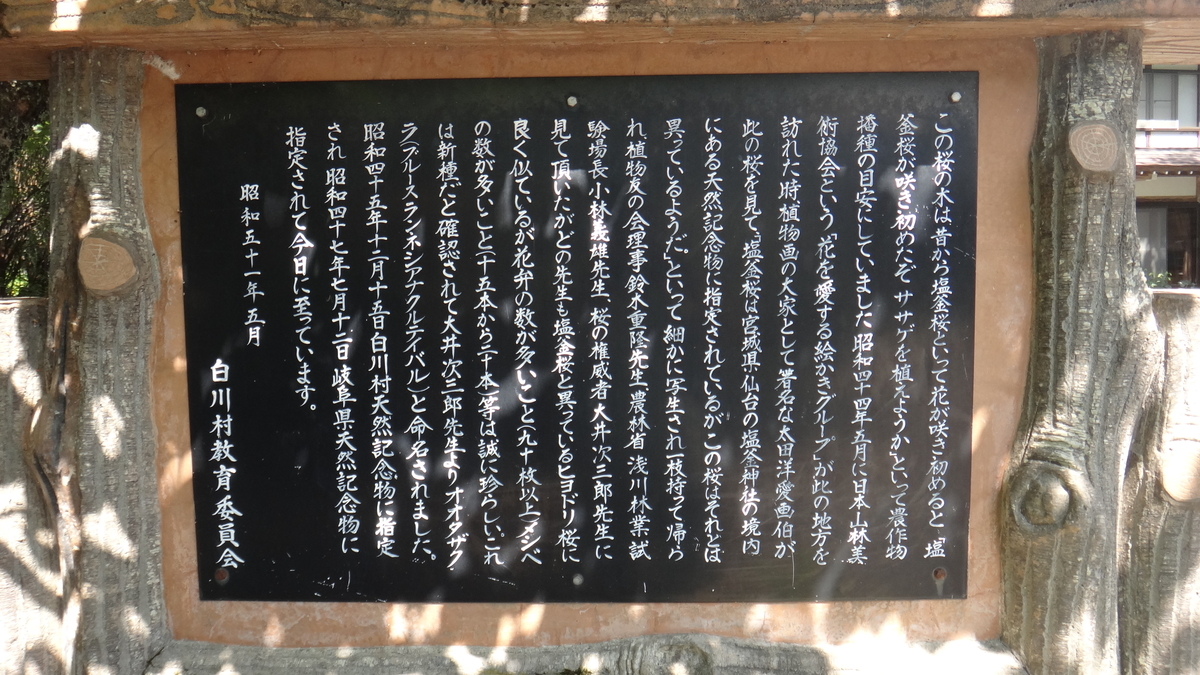 この桜の木は昔から塩釜桜といって花が咲き初めると「塩
釜桜が咲き初めたぞ ササゲを植えようか」といって農作物
播種の目安にしていました 昭和四十四年五月に日本山林美
術協会という「花を愛する絵かきグループ」が此の地方を
訪れた時植物画の大家として著名な太田洋愛画伯が
此の桜を見て、「塩釜桜は宮城県仙台の塩釜神社の境内
にある天然記念物に指定されているがこの桜はそれとは
異っているようだ。」といって細かに写生され一枝持って帰ら
れ、植物友の会理事鈴木重隆先生、農林省浅川林業試
験場長小林義雄先生、桜の権威者大井次三郎先生に
見て頂いたがどの先生も塩釜桜と異っているヒヨドリ桜に
良く似ているが花弁の数が多いこと(九十枚以上)メシベ
の数が多いこと(十五本から三十本)等は誠に珍らしい、これ
は新種だと確認されて大井次三郎先生よりオオタザク
ラ(プルーヌスランネシアナクルティバル)と命名されました。
昭和四十五年十二月十五日白川村天然記念物に指定
され 昭和四十七年七月十二日 岐阜県天然記念物に
指定されて今日に至っています。
昭和五十一年五月
白川村教育委員会